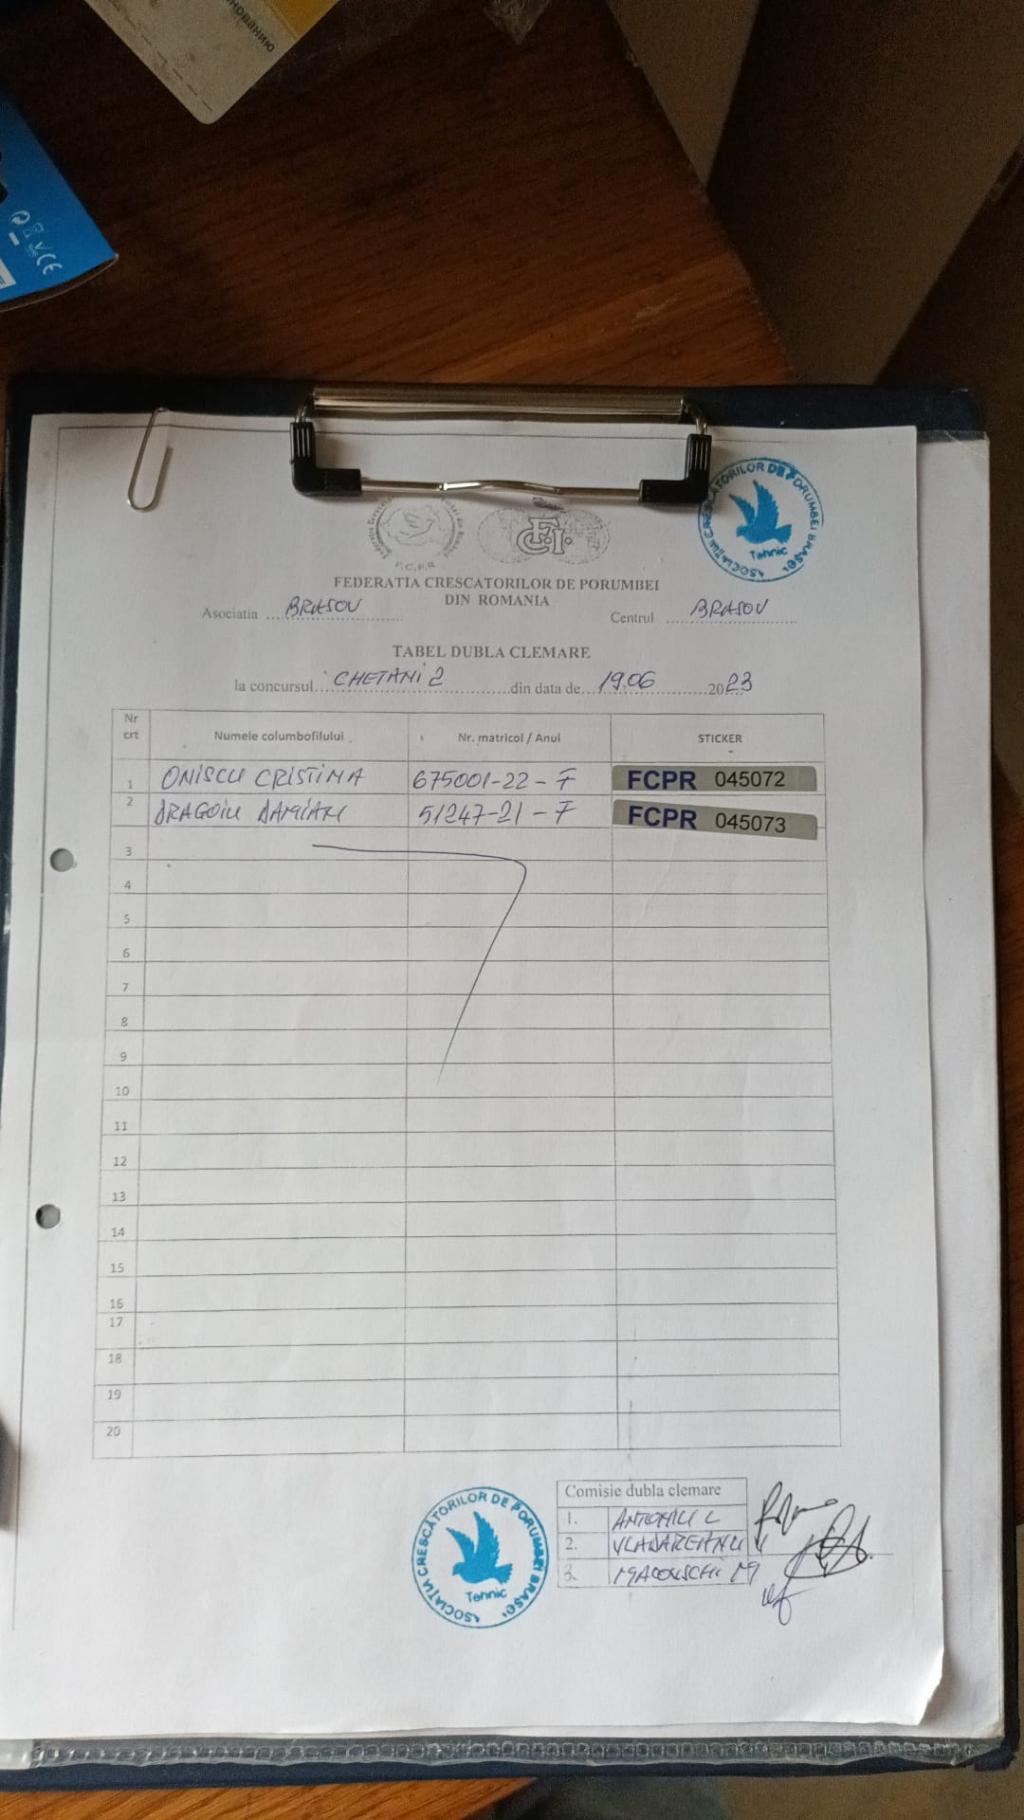 нованию
FEDERATIA CRESCATORILOR DE PORUMBEI
DIN ROMANIA
Asociatia BRASOV Centrul BRASOV
TABEL DUBLA CLEMARE
la concursul CHETANI 2 din data de 19.06 2023
Nr crt Numele columbofilului Nr. matricol / Anul STICKER
1 ONISCU CRISTINA 675001-22-F FCPR 045072
2 DRAGOIU DAMIAN 51247-21-F FCPR 045073
3
4
5
6
7
8
9
10
11
12
13
14
15
16
17
18
19
20
ASOCIAȚIA CRESCĂTORILOR DE PORUMBEI BRAȘOV
Tehnic
ASOCIAȚIA CRESCĂTORILOR DE PORUMBEI BRAȘOV
Tehnic
Comisie dubla clemare
1. ANTOHIU L
2. VLADAREANU V
3.